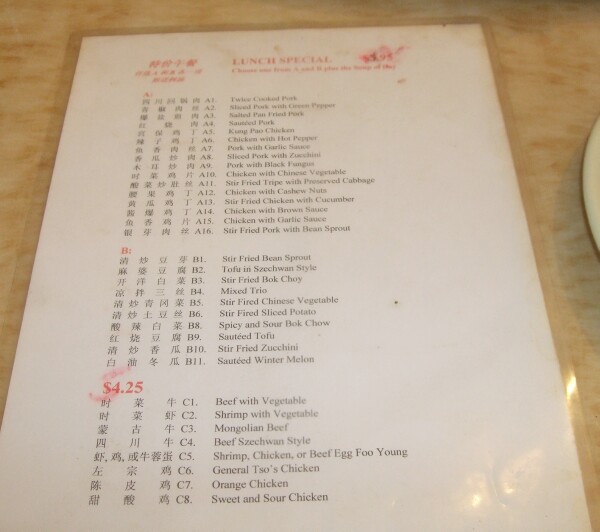 特价午餐 LUNCH SPECIAL $3.95
Choose one from A and B plus the Soup of day
A:
四川回锅肉 A1. Twice Cooked Pork
青椒肉丝 A2. Sliced Pork with Green Pepper
A3. Salted Pan Fried Pork
红烧肉 A4. Sautéed Pork
宫保鸡丁 A5. Kung Pao Chicken
辣子鸡丁 A6. Chicken with Hot Pepper
鱼香肉丝 A7. Pork with Garlic Sauce
香瓜炒肉 A8. Sliced Pork with Zucchini
木耳炒肉 A9. Pork with Black Fungus
时菜鸡片 A10. Chicken with Chinese Vegetable
酸菜炒肚丝 A11. Stir Fried Tripe with Preserved Cabbage
腰果鸡丁 A12. Chicken with Cashew Nuts
黄瓜鸡丁 A13. Stir Fried Chicken with Cucumber
酱爆鸡丁 A14. Chicken with Brown Sauce
鱼香鸡片 A15. Chicken with Garlic Sauce
银芽肉丝 A16. Stir Fried Pork with Bean Sprout
B:
清炒豆芽 B1. Stir Fried Bean Sprout
麻婆豆腐 B2. Tofu in Szechwan Style
开洋白菜 B3. Stir Fried Bok Choy
凉拌三丝 B4. Mixed Trio
清炒青冈菜 B5. Stir Fired Chinese Vegetable
清炒土豆丝 B6. Stir Fired Sliced Potato
酸辣白菜 B8. Spicy and Sour Bok Chow
红烧豆腐 B9. Sautéed Tofu
清炒香瓜 B10. Stir Fried Zucchini
白油冬瓜 B11. Sautéed Winter Melon
$4.25
时菜牛 C1. Beef with Vegetable
时菜虾 C2. Shrimp with Vegetable
蒙古牛 C3. Mongolian Beef
四川牛 C4. Beef Szechwan Style
虾,鸡,或牛蓉蛋 C5. Shrimp, Chicken, or Beef Egg Foo Young
左宗鸡 C6. General Tso's Chicken
陈皮鸡 C7. Orange Chicken
甜酸鸡 C8. Sweet and Sour Chicken